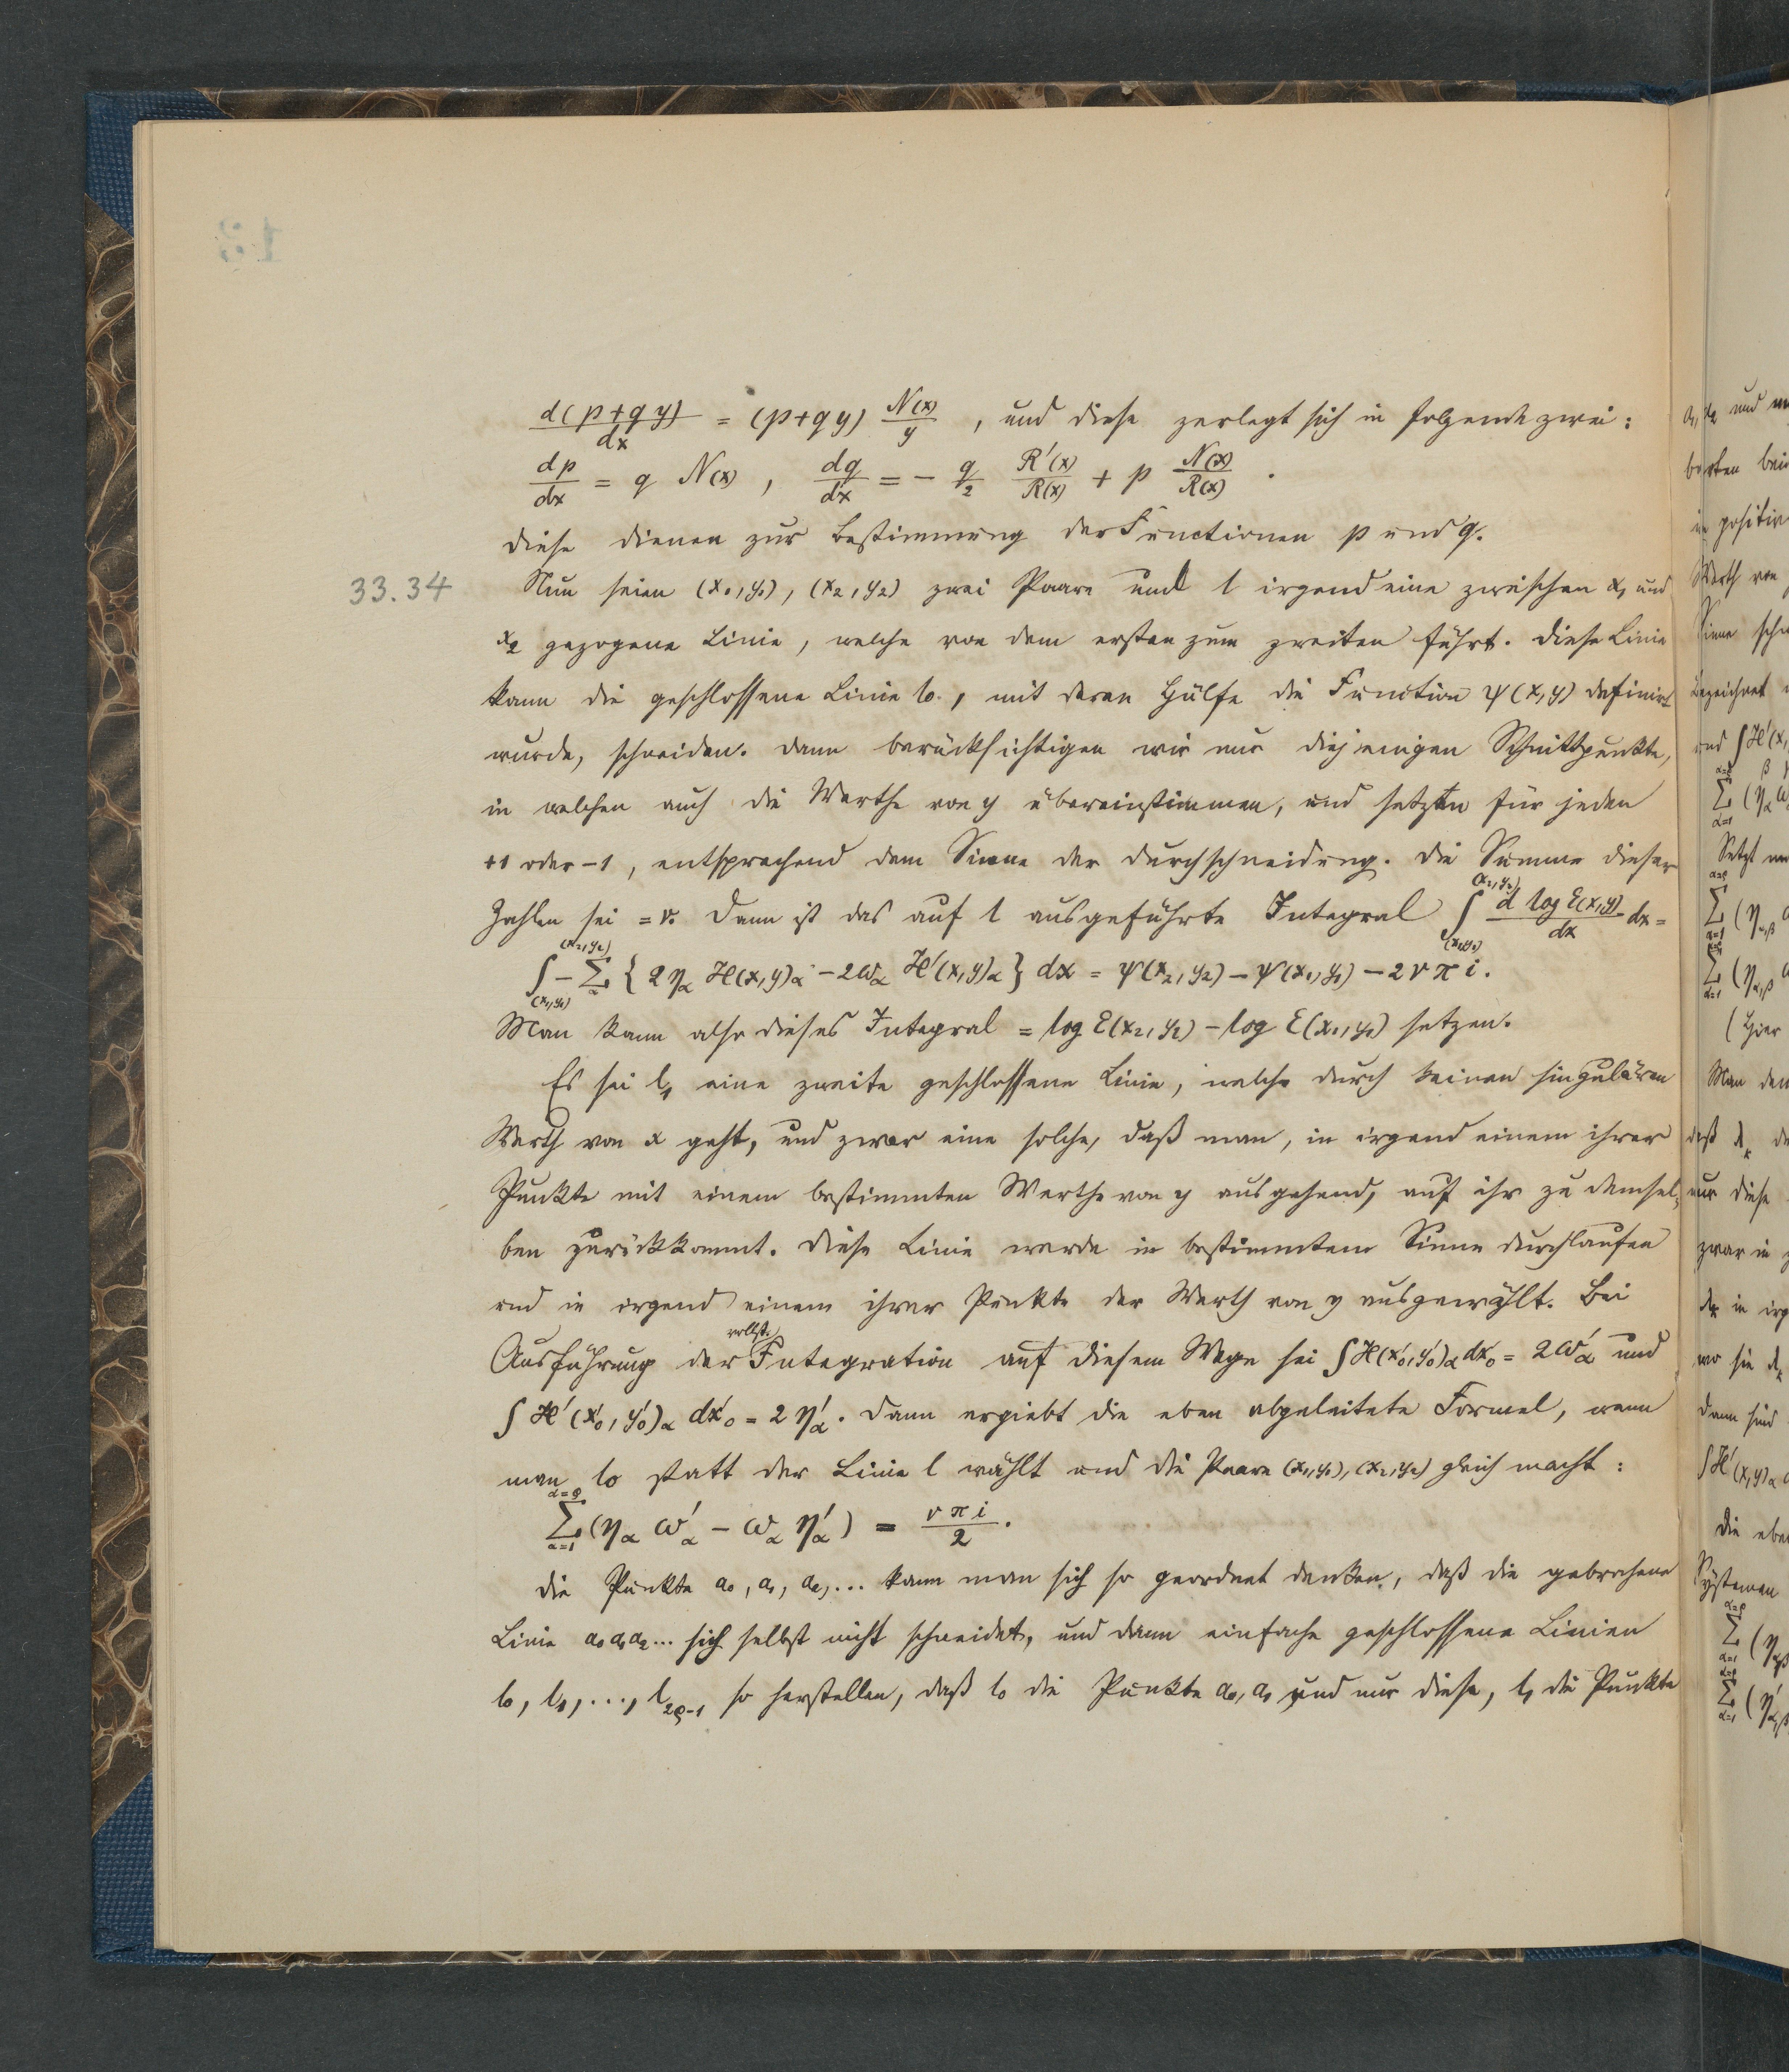 d(p+qy)/dx = (p+qy) N(x)/y , und diese zerlegt sich in folgende zwei:
dp/dx = q N(x) , dq/dx = − q/2 R'(x)/R(x) + p N(x)/R(x) .
diese dienen zur Bestimmung der Functionen p und q.
33.34
Nun seien (x₁,y₁), (x₂,y₂) zwei Paare und l irgend eine zwischen x₁ und
x₂ gezogene Linie, welche von dem ersten zum zweiten führt. Diese Linie
kann die geschlossene Linie l₀, mit deren Hülfe die Function ψ(x,y) definirt
wurde, schneiden. Dann berücksichtigen wir nur diejenigen Schnittpunkte,
in welchen auch die Werthe von y übereinstimmen, und setzen für jeden
+1 oder −1, entsprechend dem Sinne der Durchschneidung. Die Summe dieser
Zahlen sei = ν. Dann ist das auf l ausgeführte Integral ∫_(x₁,y₁)^(x₂,y₂) d log E(x,y)/dx dx =
∫_(x₁,y₁)^(x₂,y₂) − Σ_α {2η_α H(x,y)_α − 2ω_α H'(x,y)_α} dx = ψ(x₂,y₂) − ψ(x₁,y₁) − 2νπi.
Man kann also dieses Integral = log E(x₂,y₂) − log E(x₁,y₁) setzen.
Es sei l₁ eine zweite geschlossene Linie, welche durch keinen singulären
Werth von x geht, und zwar eine solche, daß man, in irgend einem ihrer
Punkte mit einem bestimmten Werthe von y ausgehend, auf ihr zu demsel-
ben zurückkommt. Diese Linie werde in bestimmtem Sinne durchlaufen
und in irgend einem ihrer Punkte der Werth von y ausgewählt. Bei
vollst.
Ausführung der Integration auf diesem Wege sei ∫H(x'₀,y'₀)_α dx'₀ = 2ω'_α und
∫H'(x'₀,y'₀)_α dx'₀ = 2η'_α. Dann ergiebt die eben abgeleitete Formel, wenn
man l₀ statt der Linie l wählt und die Paare (x₁,y₁), (x₂,y₂) gleich macht:
Σ_{α=1}^{α=ρ} (η_α ω'_α − ω_α η'_α) = νπi/2.
Die Punkte a₀, a₁, a₂, ... kann man sich so geordnet denken, daß die gebrochene
Linie a₀a₁a₂... sich selbst nicht schneidet, und dann einfache geschlossene Linien
l₀, l₁, ..., l_{2ρ-1} so herstellen, daß l₀ die Punkte a₀, a₁ und nur diese, l₁ die Punkte